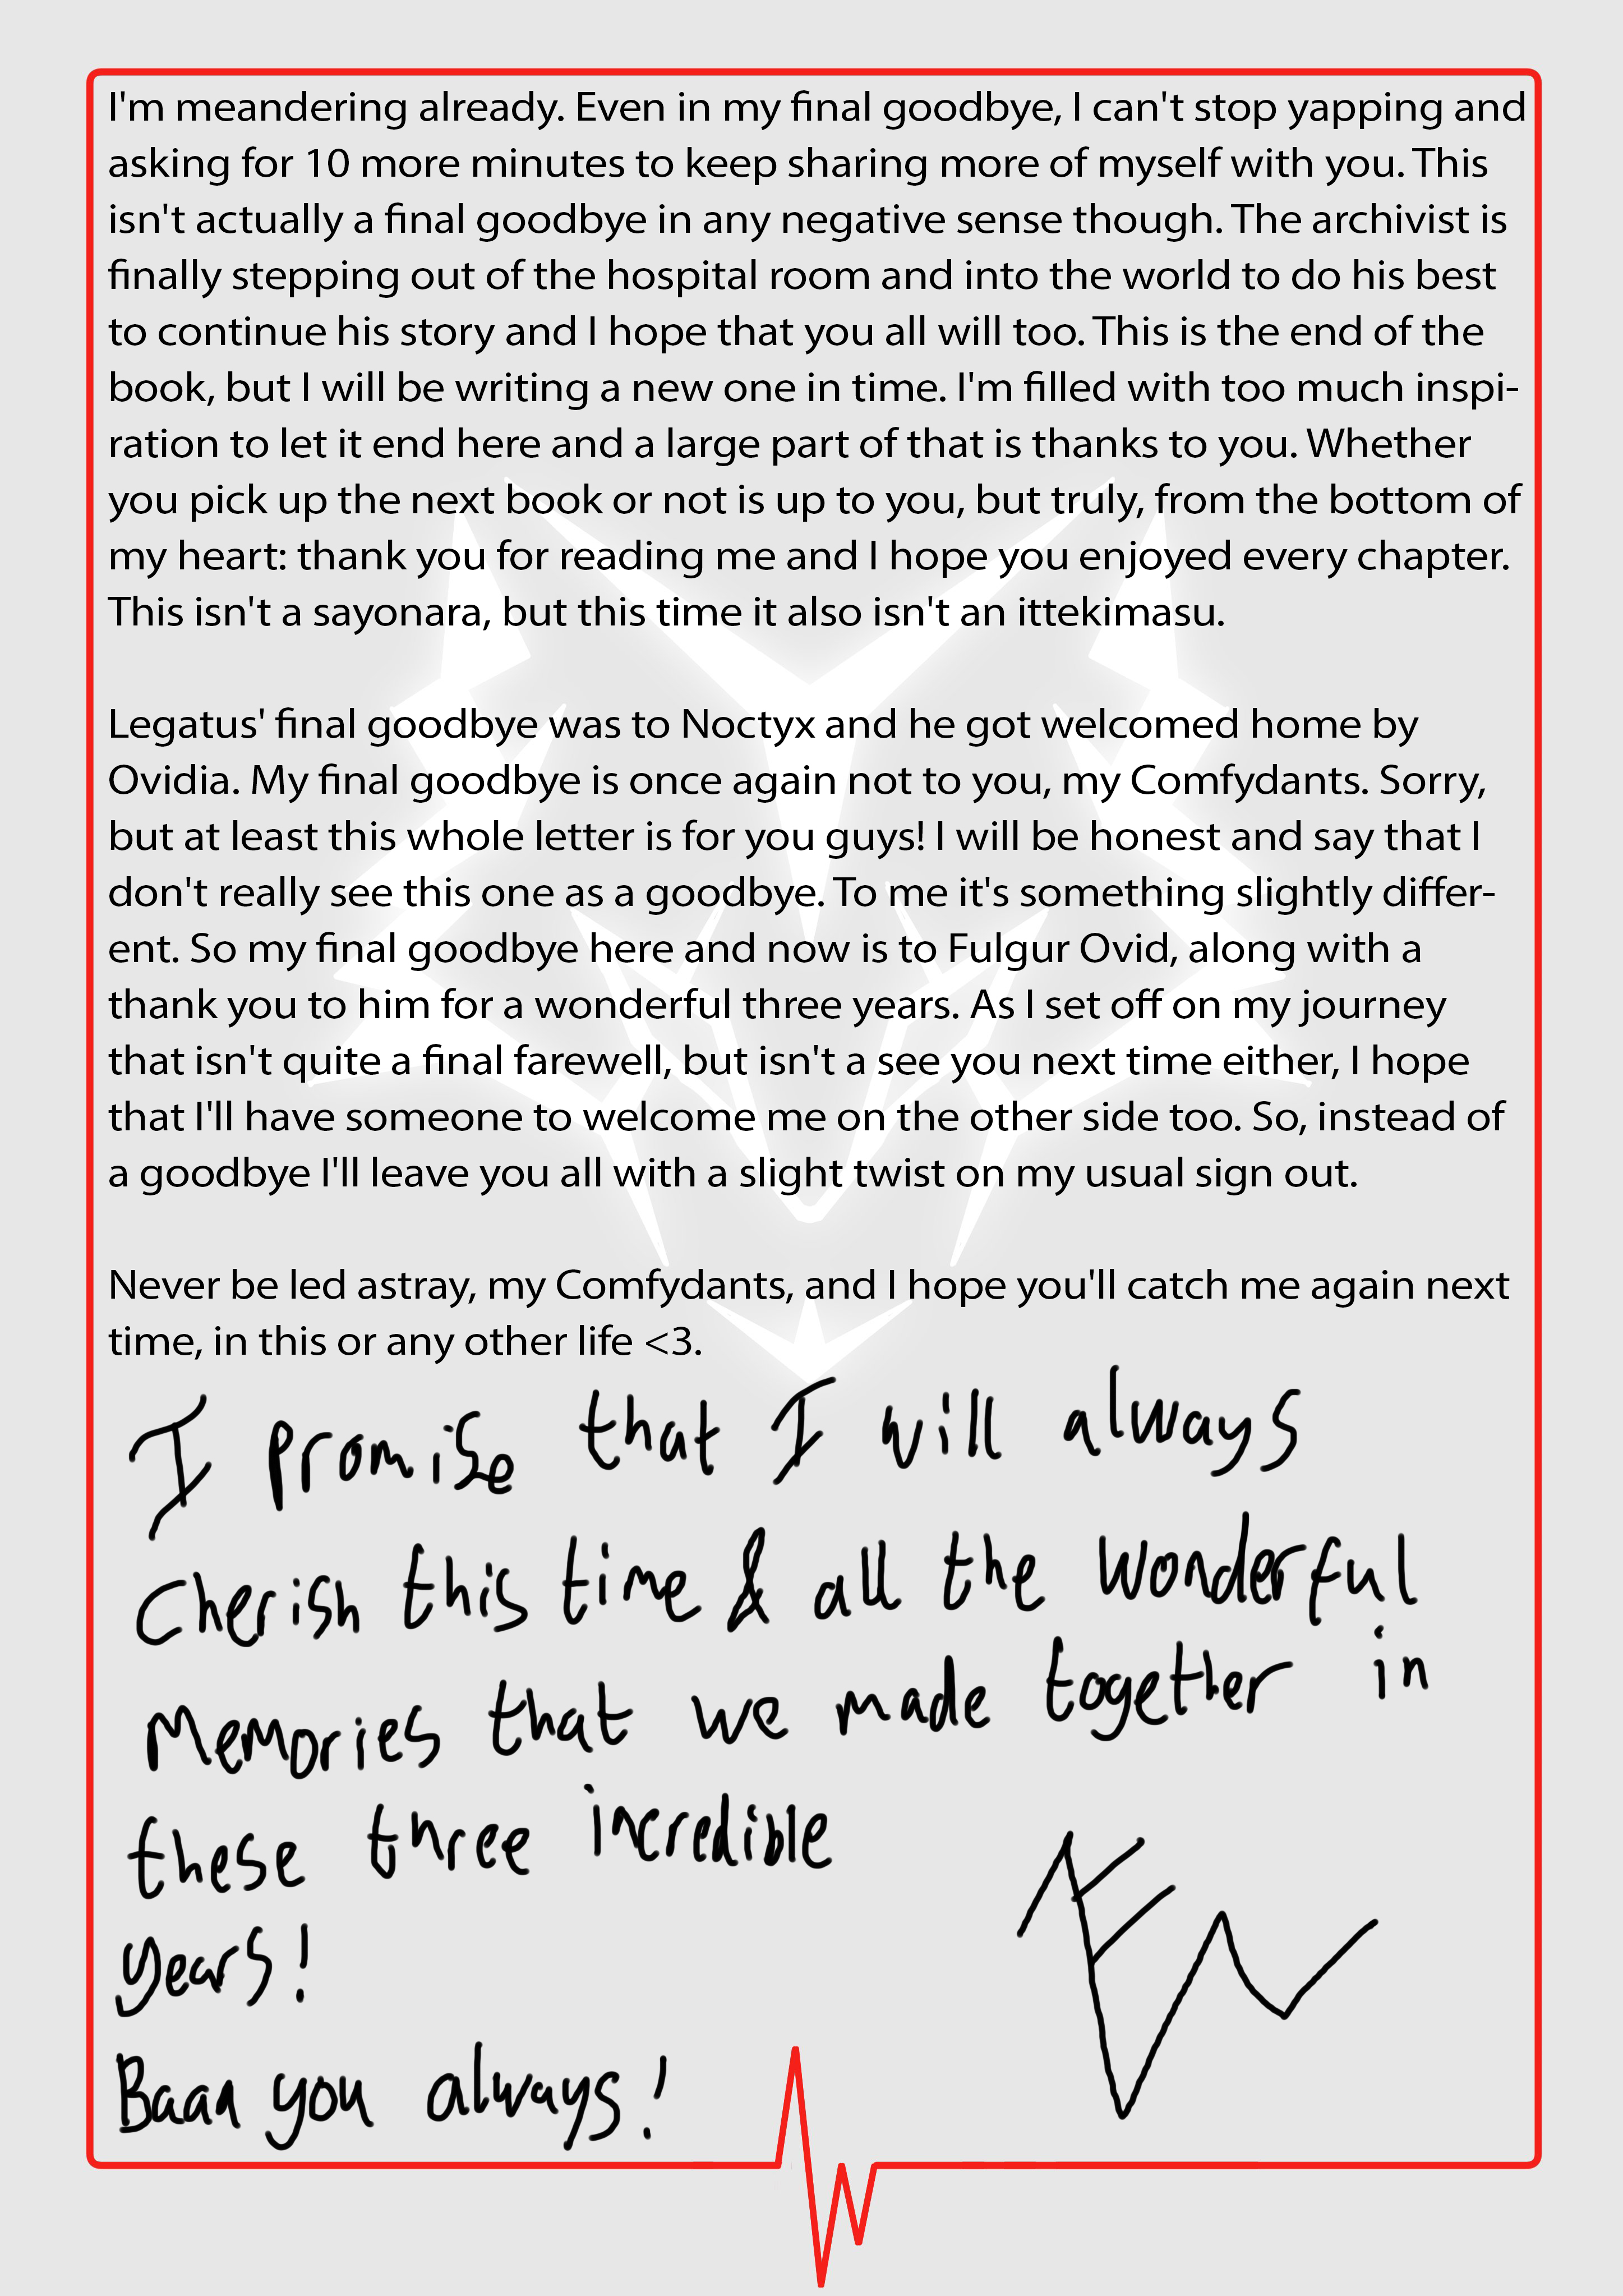 I'm meandering already. Even in my final goodbye, I can't stop yapping and
asking for 10 more minutes to keep sharing more of myself with you. This
isn't actually a final goodbye in any negative sense though. The archivist is
finally stepping out of the hospital room and into the world to do his best
to continue his story and I hope that you all will too. This is the end of the
book, but I will be writing a new one in time. I'm filled with too much inspi-
ration to let it end here and a large part of that is thanks to you. Whether
you pick up the next book or not is up to you, but truly, from the bottom of
my heart: thank you for reading me and I hope you enjoyed every chapter.
This isn't a sayonara, but this time it also isn't an ittekimasu.
Legatus' final goodbye was to Noctyx and he got welcomed home by
Ovidia. My final goodbye is once again not to you, my Comfydants. Sorry,
but at least this whole letter is for you guys! I will be honest and say that I
don't really see this one as a goodbye. To me it's something slightly differ-
ent. So my final goodbye here and now is to Fulgur Ovid, along with a
thank you to him for a wonderful three years. As I set off on my journey
that isn't quite a final farewell, but isn't a see you next time either, I hope
that I'll have someone to welcome me on the other side too. So, instead of
a goodbye I'll leave you all with a slight twist on my usual sign out.
Never be led astray, my Comfydants, and I hope you'll catch me again next
time, in this or any other life <3.
I promise that I will always
Cherish this time & all the wonderful
Memories that we made together in
these three incredible
years!
Baaa you always!